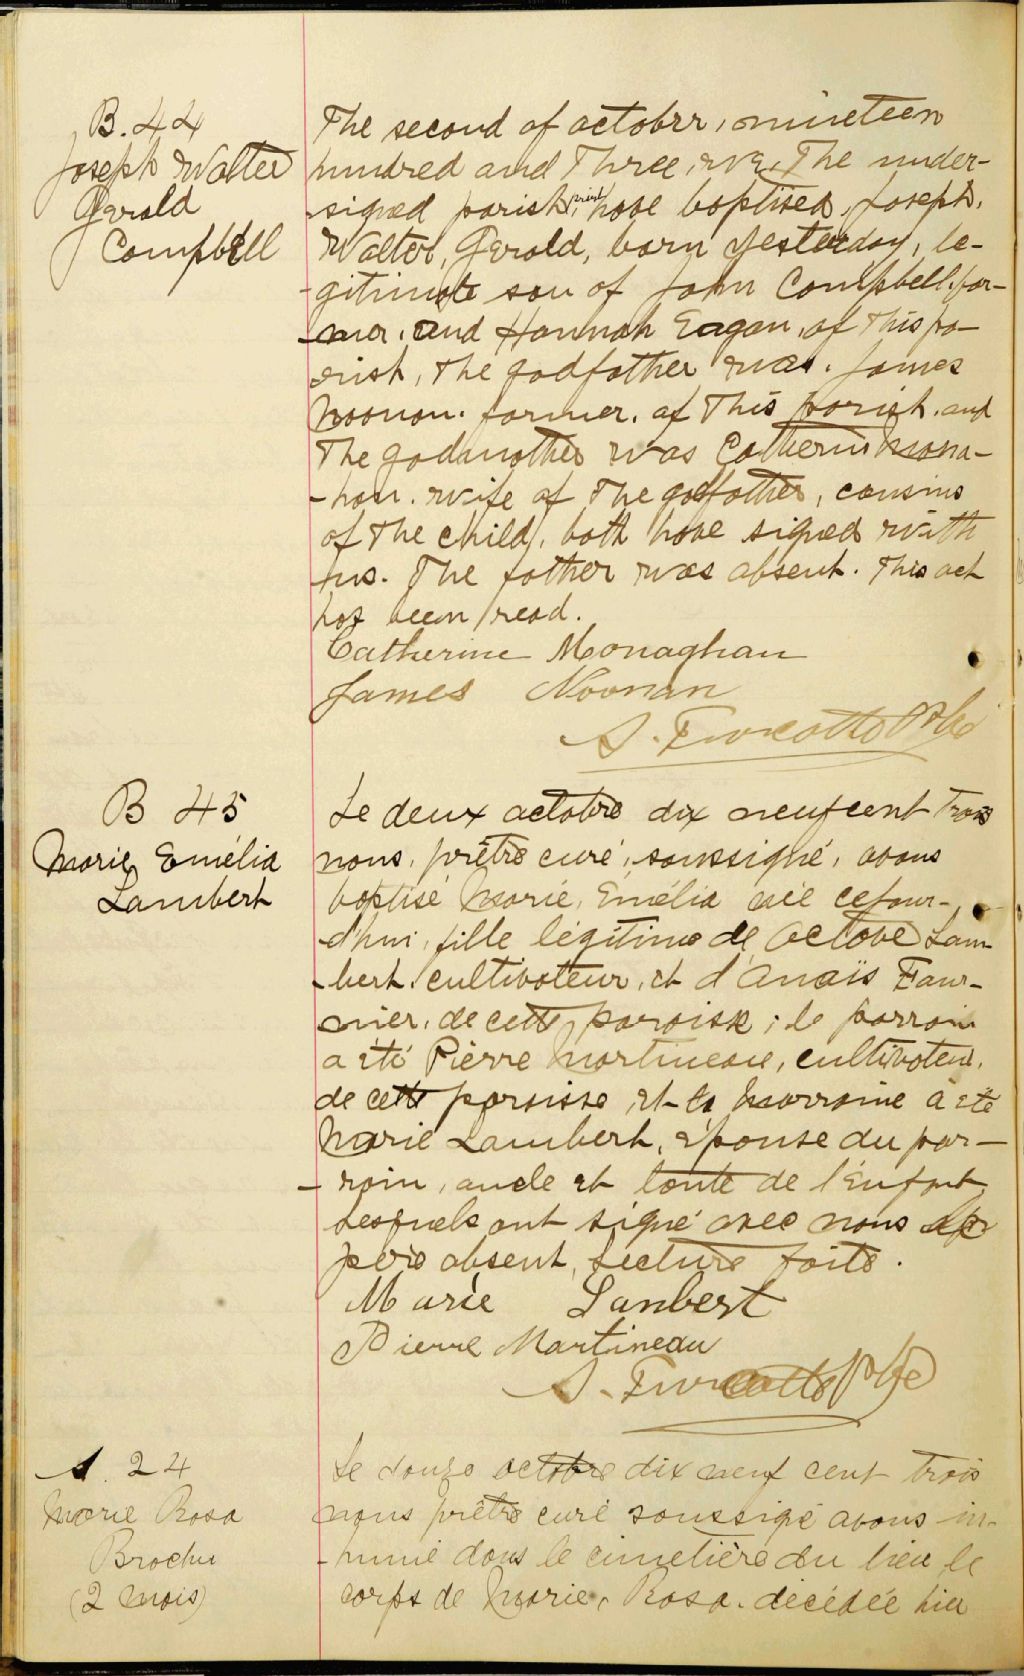 B. 44
Joseph Walter
Gerald
Campbell
The second of october, nineteen
hundred and Three, we, The under-
signed parish priest, have baptised, Joseph,
Walter, Gerald, born yesterday, le-
gitimate son of John Campbell, far-
mer, and Hannah Eagan, of This pa-
rish, The godfather was James
Noonan, farmer, of This parish, and
The godmother was Catherine Mona-
-han, wife of The godfather, cousins
of The child, both have signed with
us. The father was absent. This act
has been read.
Catherine Monaghan
James Noonan
A. Turcotte Ptre
B 45
Marie Emélia
Lambert
Le deux octobre dix neuf cent Trois
nous, prêtre curé, soussigné, avons
baptisé Marie, Emélia née ce jour-
d'hui, fille légitime de Octave Lam
-bert, cultivateur, et d'Anaïs Four-
nier, de cette paroisse ; le parrain
a été Pierre Martineau, cultivateur,
de cette paroisse, et la Marraine a été
Marie Lambert, épouse du par-
-rain, oncle et tante de l'enfant
lesquels ont signé avec nous le
père absent, Lecture faite.
Marie Lanbert
Pierre Martineau
A. Turcotte Ptre
S. 24
Marie Rosa
Brochu
(2 mois)
Le douze octobre dix neuf cent trois
nous prêtre curé soussigé avons in-
-humé dans le cimetière du lieu le
corps de Marie, Rosa, décédée hier